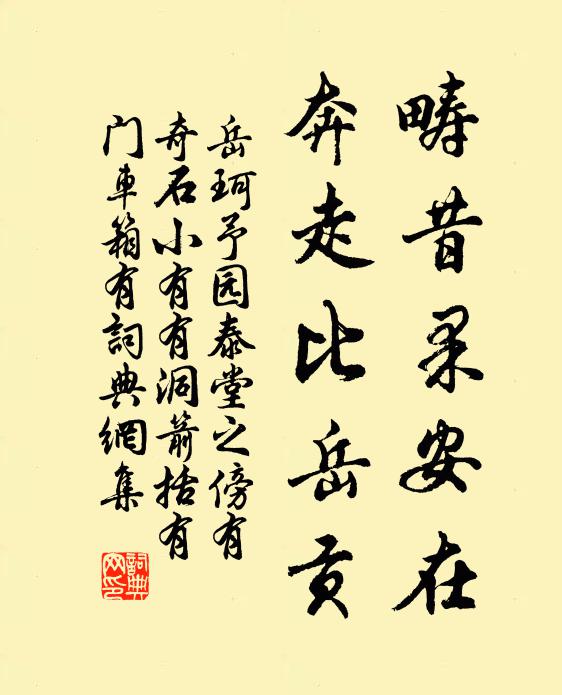 畴昔果安在
奔走比岳贡
岳珂予园泰堂之傍有
奇石小有有洞箭括有
门車箱有詞典網集
詞典網印